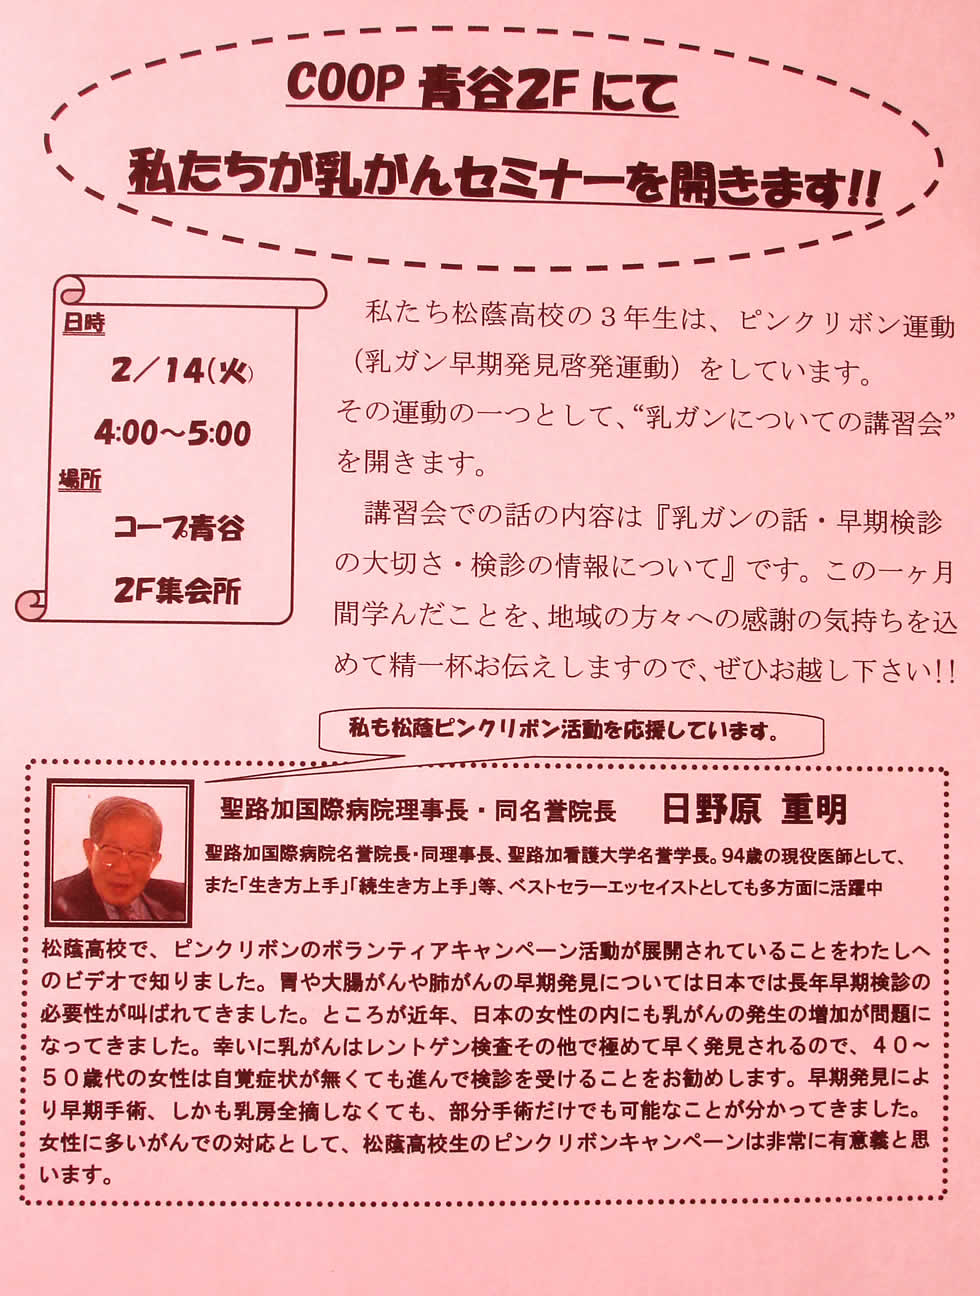 COOP 青谷2F にて
私たちが乳がんセミナーを開きます!!
日時
2／14(火)
4:00～5:00
場所
コープ青谷
2F集会所
私たち松蔭高校の３年生は、ピンクリボン運動
（乳ガン早期発見啓発運動）をしています。
その運動の一つとして、“乳ガンについての講習会”
を開きます。
講習会での話の内容は『乳ガンの話・早期検診
の大切さ・検診の情報について』です。この一ヶ月
間学んだことを、地域の方々への感謝の気持ちを込
めて精一杯お伝えしますので、ぜひお越し下さい!!
私も松蔭ピンクリボン活動を応援しています。
聖路加国際病院理事長・同名誉院長　日野原 重明
聖路加国際病院名誉院長・同理事長、聖路加看護大学名誉学長。94歳の現役医師として、
また「生き方上手」「続生き方上手」等、ベストセラーエッセイストとしても多方面に活躍中
松蔭高校で、ピンクリボンのボランティアキャンペーン活動が展開されていることをわたしへ
のビデオで知りました。胃や大腸がんや肺がんの早期発見については日本では長年早期検診の
必要性が叫ばれてきました。ところが近年、日本の女性の内にも乳がんの発生の増加が問題に
なってきました。幸いに乳がんはレントゲン検査その他で極めて早く発見されるので、４０～
５０歳代の女性は自覚症状が無くても進んで検診を受けることをお勧めします。早期発見によ
り早期手術、しかも乳房全摘しなくても、部分手術だけでも可能なことが分かってきました。
女性に多いがんでの対応として、松蔭高校生のピンクリボンキャンペーンは非常に有意義と思
います。